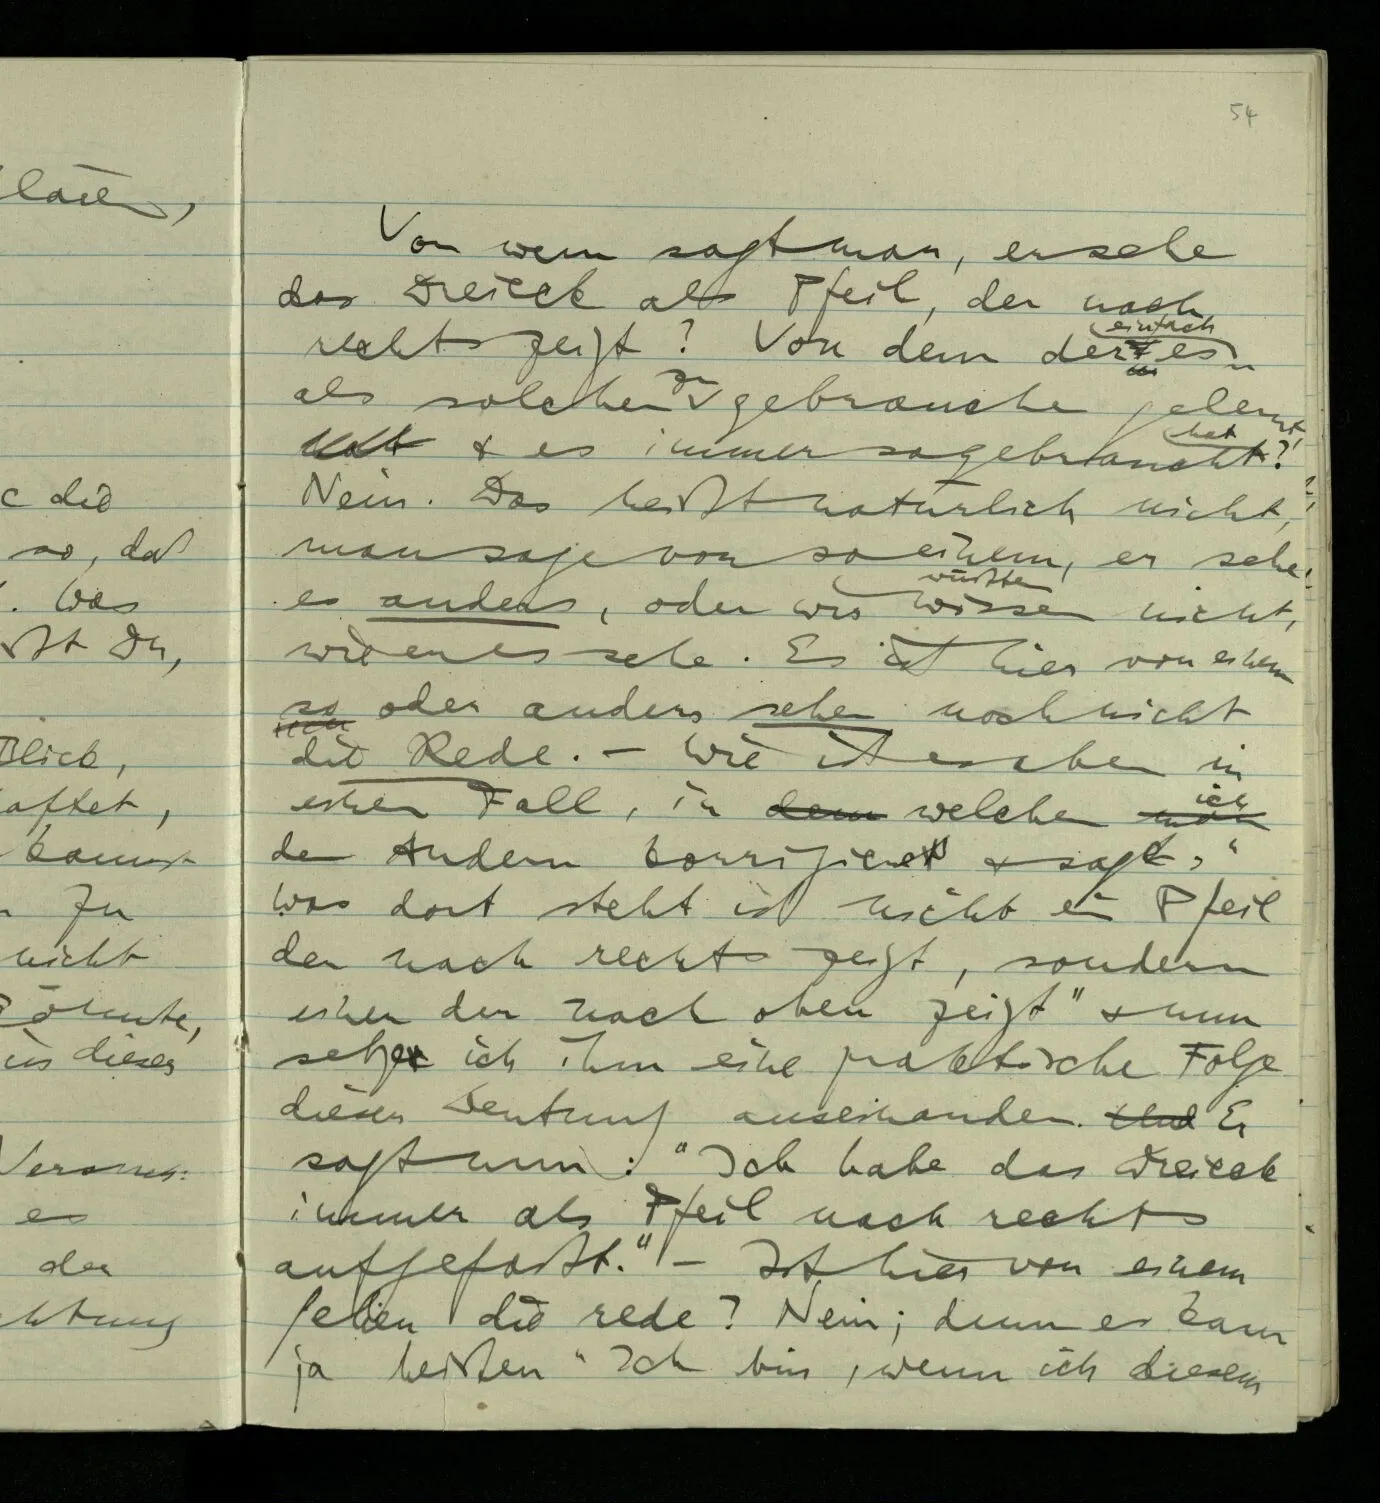 54
Von wem sagt man, er sehe
das Dreieck als Pfeil, der nach
rechts zeigt? Von dem der es einfach
als solchen zu gebrauchen gelernt
hat & es immer so gebraucht hat?
Nein. Das heißt natürlich nicht,
man sage von so einem, er sehe
es anders, oder wir wissen wüßten nicht,
wie er es sehe. Es ist hier von einem
so oder anders sehen noch nicht
die Rede. – Wie ist es aber in
einem Fall, in dem welchem man ich
den Andern korrigiere & sage, "
Was dort steht ist nicht ein Pfeil
der nach rechts zeigt, sondern
einer der nach oben zeigt" & nun
setze ich ihm eine praktische Folge
dieser Deutung auseinander. Und Er
sagt nun: "Ich habe das Dreieck
immer als Pfeil nach rechts
aufgefaßt." – Ist hier von einem
sehen die rede? Nein; denn es kann
ja heißen "Ich bin, wenn ich diesem
c die
so, daß
. Was
Du,
Blick,
haftet,
kannst
zu
nicht
könnte,
in dieser
es
der